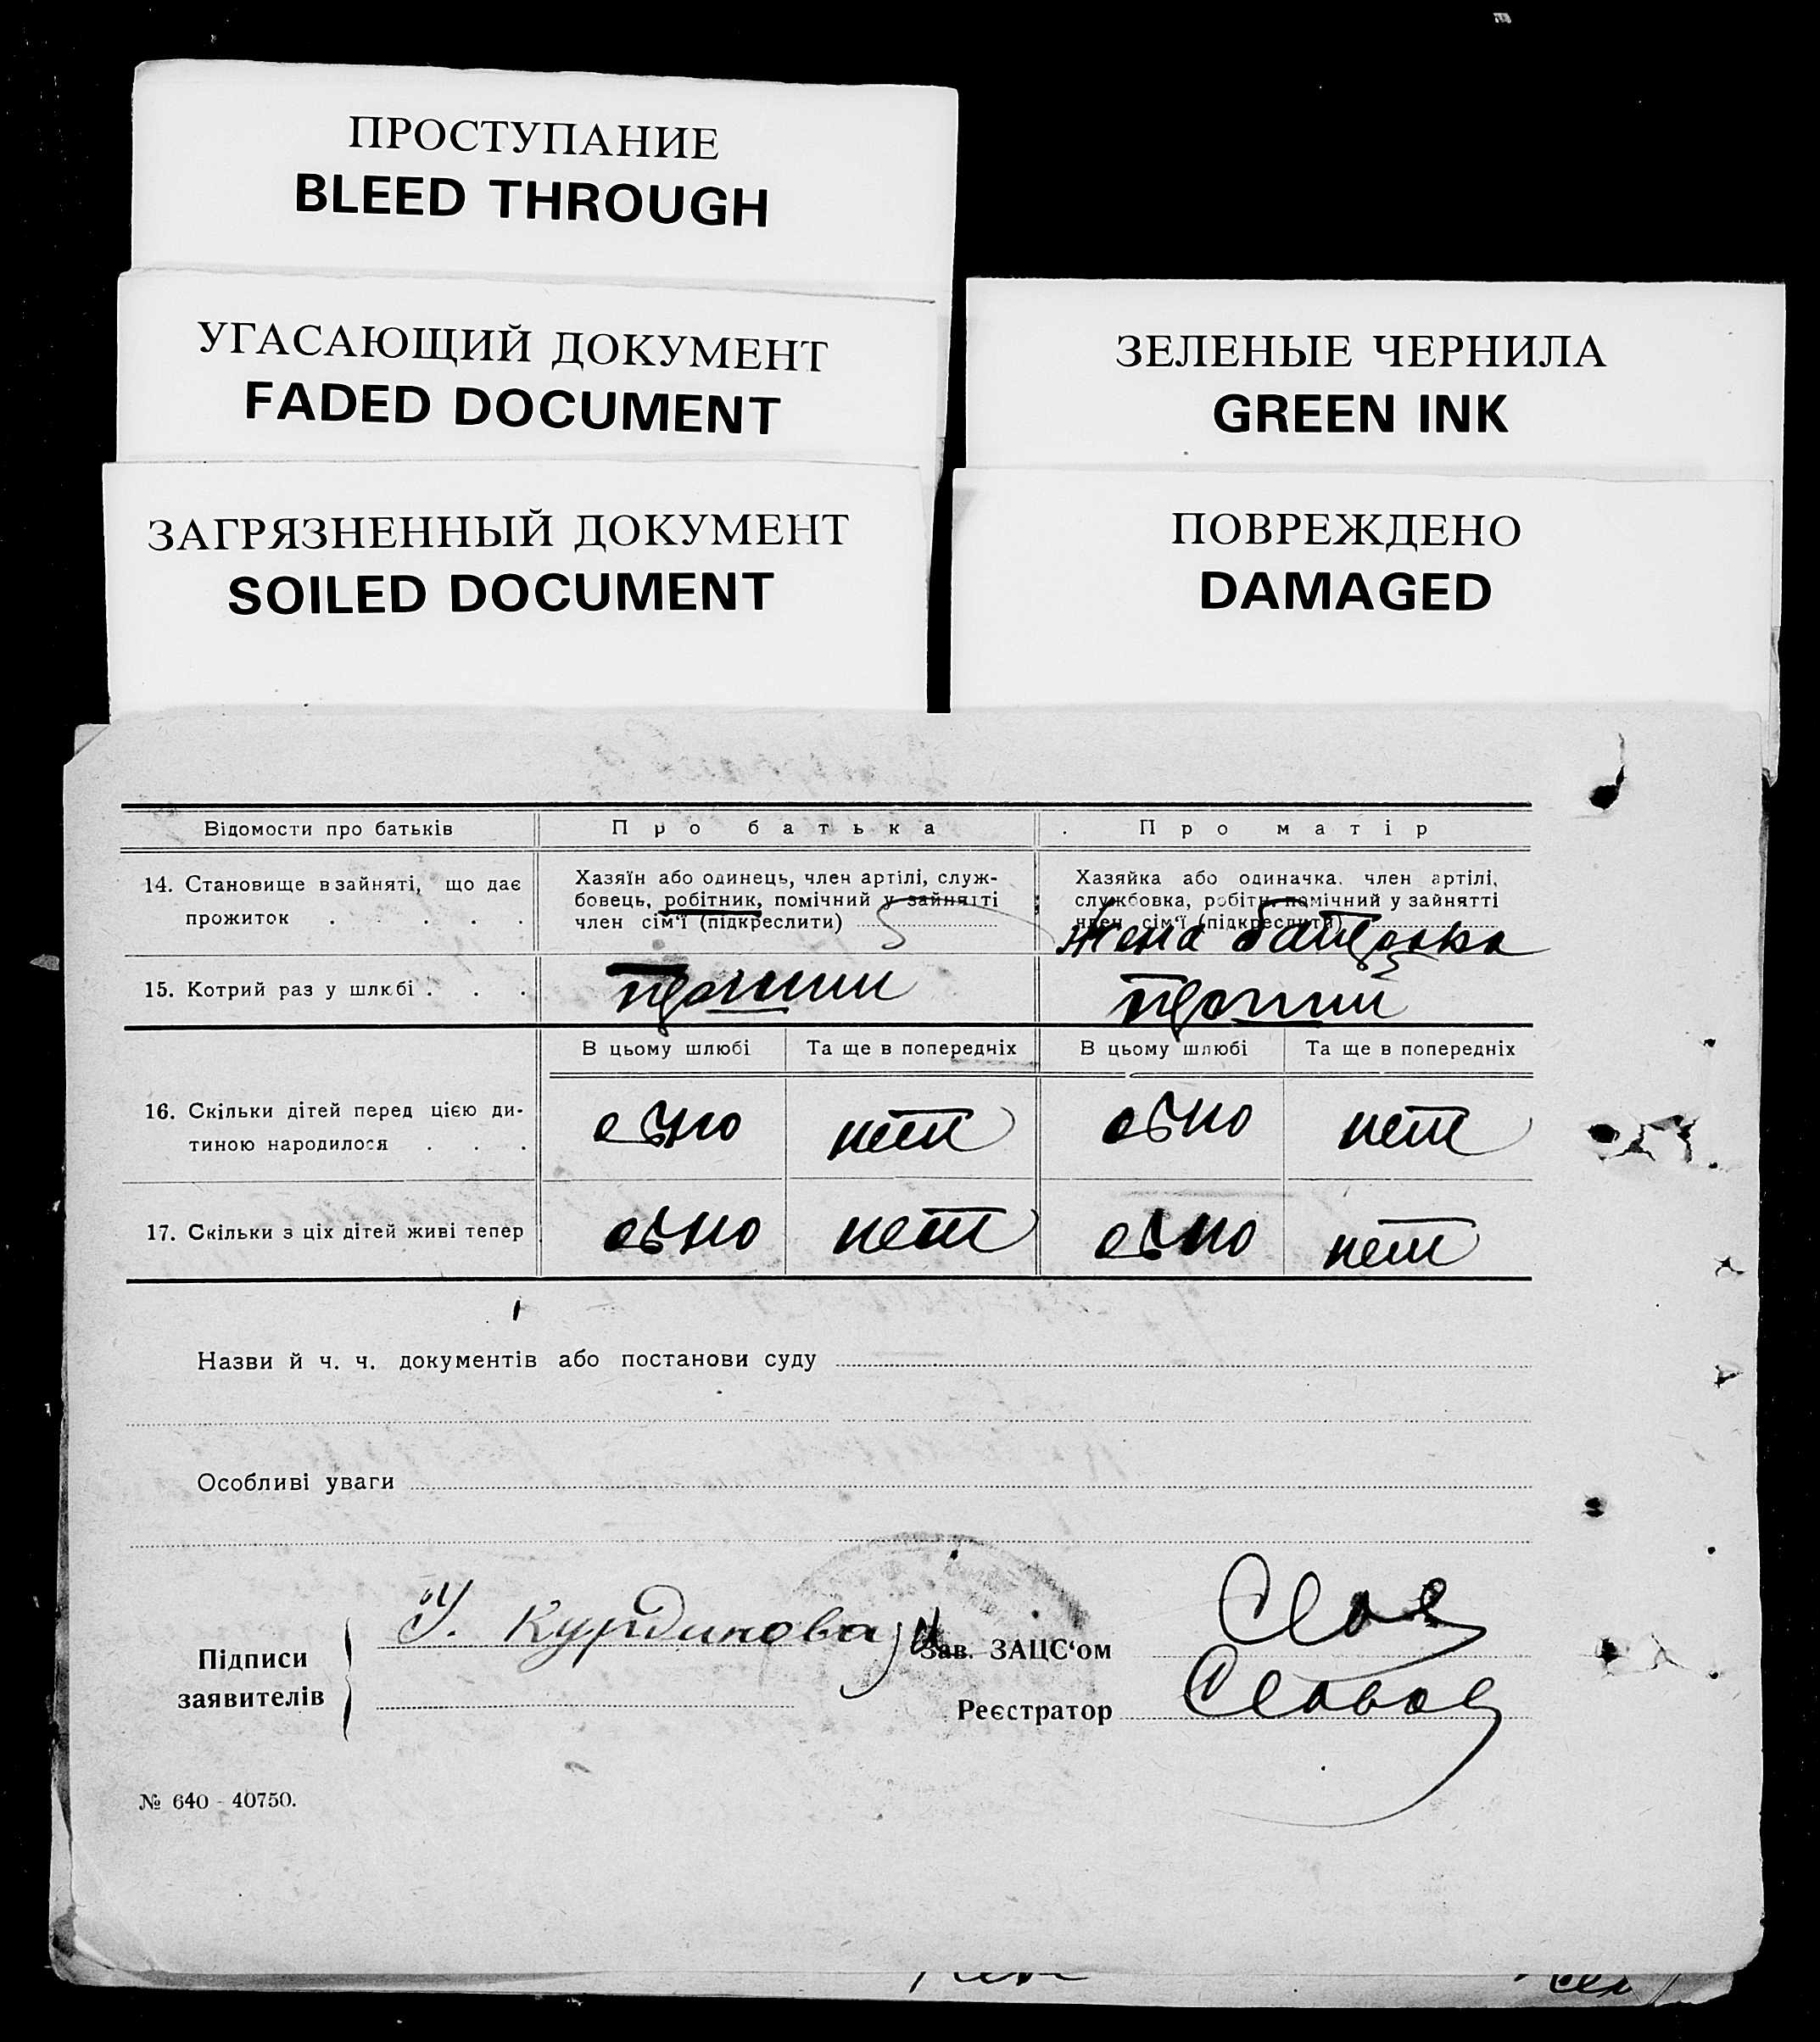 ПРОСТУПАНИЕ
BLEED THROUGH
УГАСАЮЩИЙ ДОКУМЕНТ
FADED DOCUMENT
ЗЕЛЕНЫЕ ЧЕРНИЛА
GREEN INK
ЗАГРЯЗНЕННЫЙ ДОКУМЕНТ
SOILED DOCUMENT
ПОВРЕЖДЕНО
DAMAGED
Відомости про батьків Про батька Про матір
14. Становище в зайняті, що дає прожиток
Хазяїн або одинець, член артілі, служ-
бовець, робітник, помічний у зайнятті
член сім'ї (підкреслити)
Хазяйка або одиначка, член артілі,
службовка, робітн. помічний у зайнятті
член сім'ї (підкреслити)
жена
15. Котрий раз у шлюбі
В цьому шлюбі Та ще в попередніх В цьому шлюбі Та ще в попередніх
16. Скільки дітей перед цією ди-
тиною народилося
одно нет одно нет
17. Скільки з ціх дітей живі тепер одно нет одно нет
Назви й ч. ч. документів або постанови суду
Особливі уваги
Підписи
заявителів
Зав. ЗАЦС‘ом
Реєстратор
№ 640 - 40750.